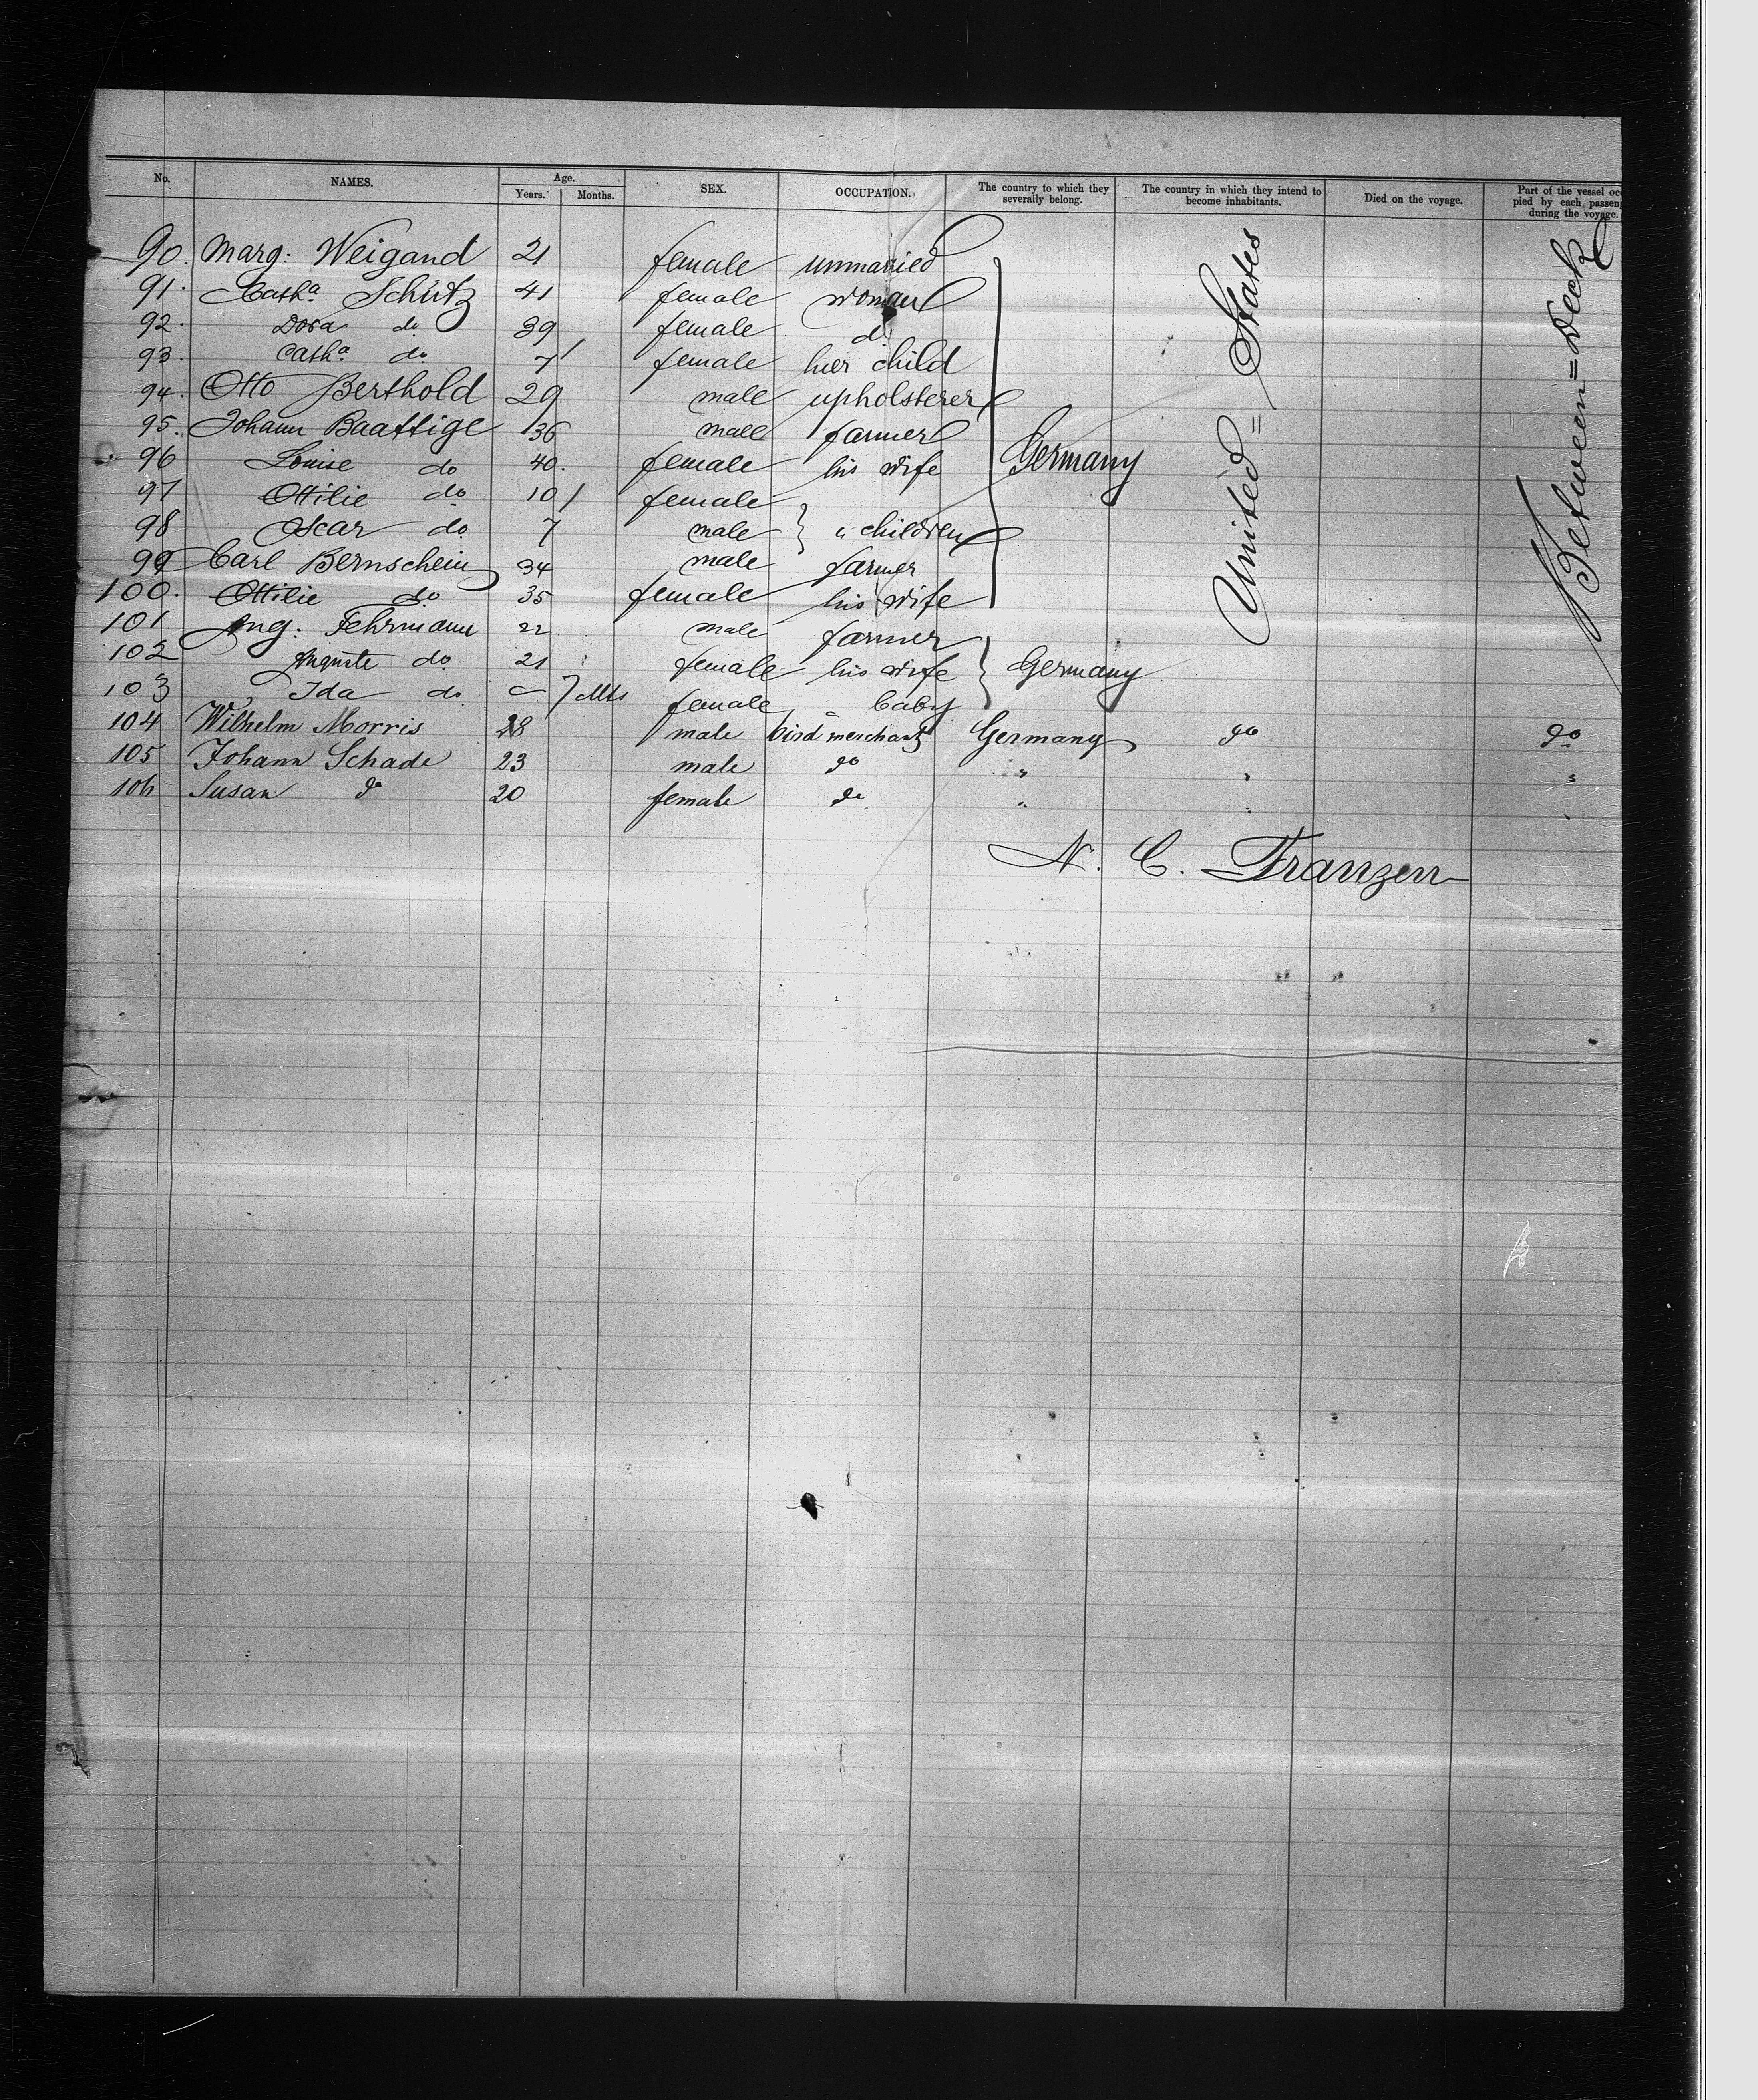 No. NAMES. Age. Years. Months. SEX. OCCUPATION. The country to which they severally belong. The country in which they intend to become inhabitants. Died on the voyage. Part of the vessel occu pied by each passen during the voyage.
90. Marg. Weigand 21 female unmarried
91. Cath.a Schütz 41 female woman
92. Dora do 39 female do
93. Cath.a do 7 female her child
94. Otto Berthold 29 male upholsterer
95. Johann Baattige 36 male farmer
96 Louise do 40. female his wife Germany
97 Ottilie do 10 female
98 Oscar do 7 male " children
99 Carl Bernschein 34 male farmer
100. Ottilie do 35 female his wife
United = States
Between = Deck
101 Aug. Fehrmann 22 male farmer
102 Auguste do 21 female his wife Germany
103 Ida do — 7 Mts female " baby
104 Wilhelm Morris 28 male bird merchant Germany do do
105 Johann Schade 23 male do " " "
106 Susan do 20 female do " " "
N. C. Franzen